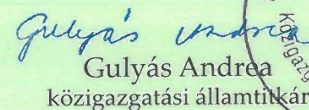 Gulyás Andrea
Gulyás Andrea
közigazgatási államtitkár